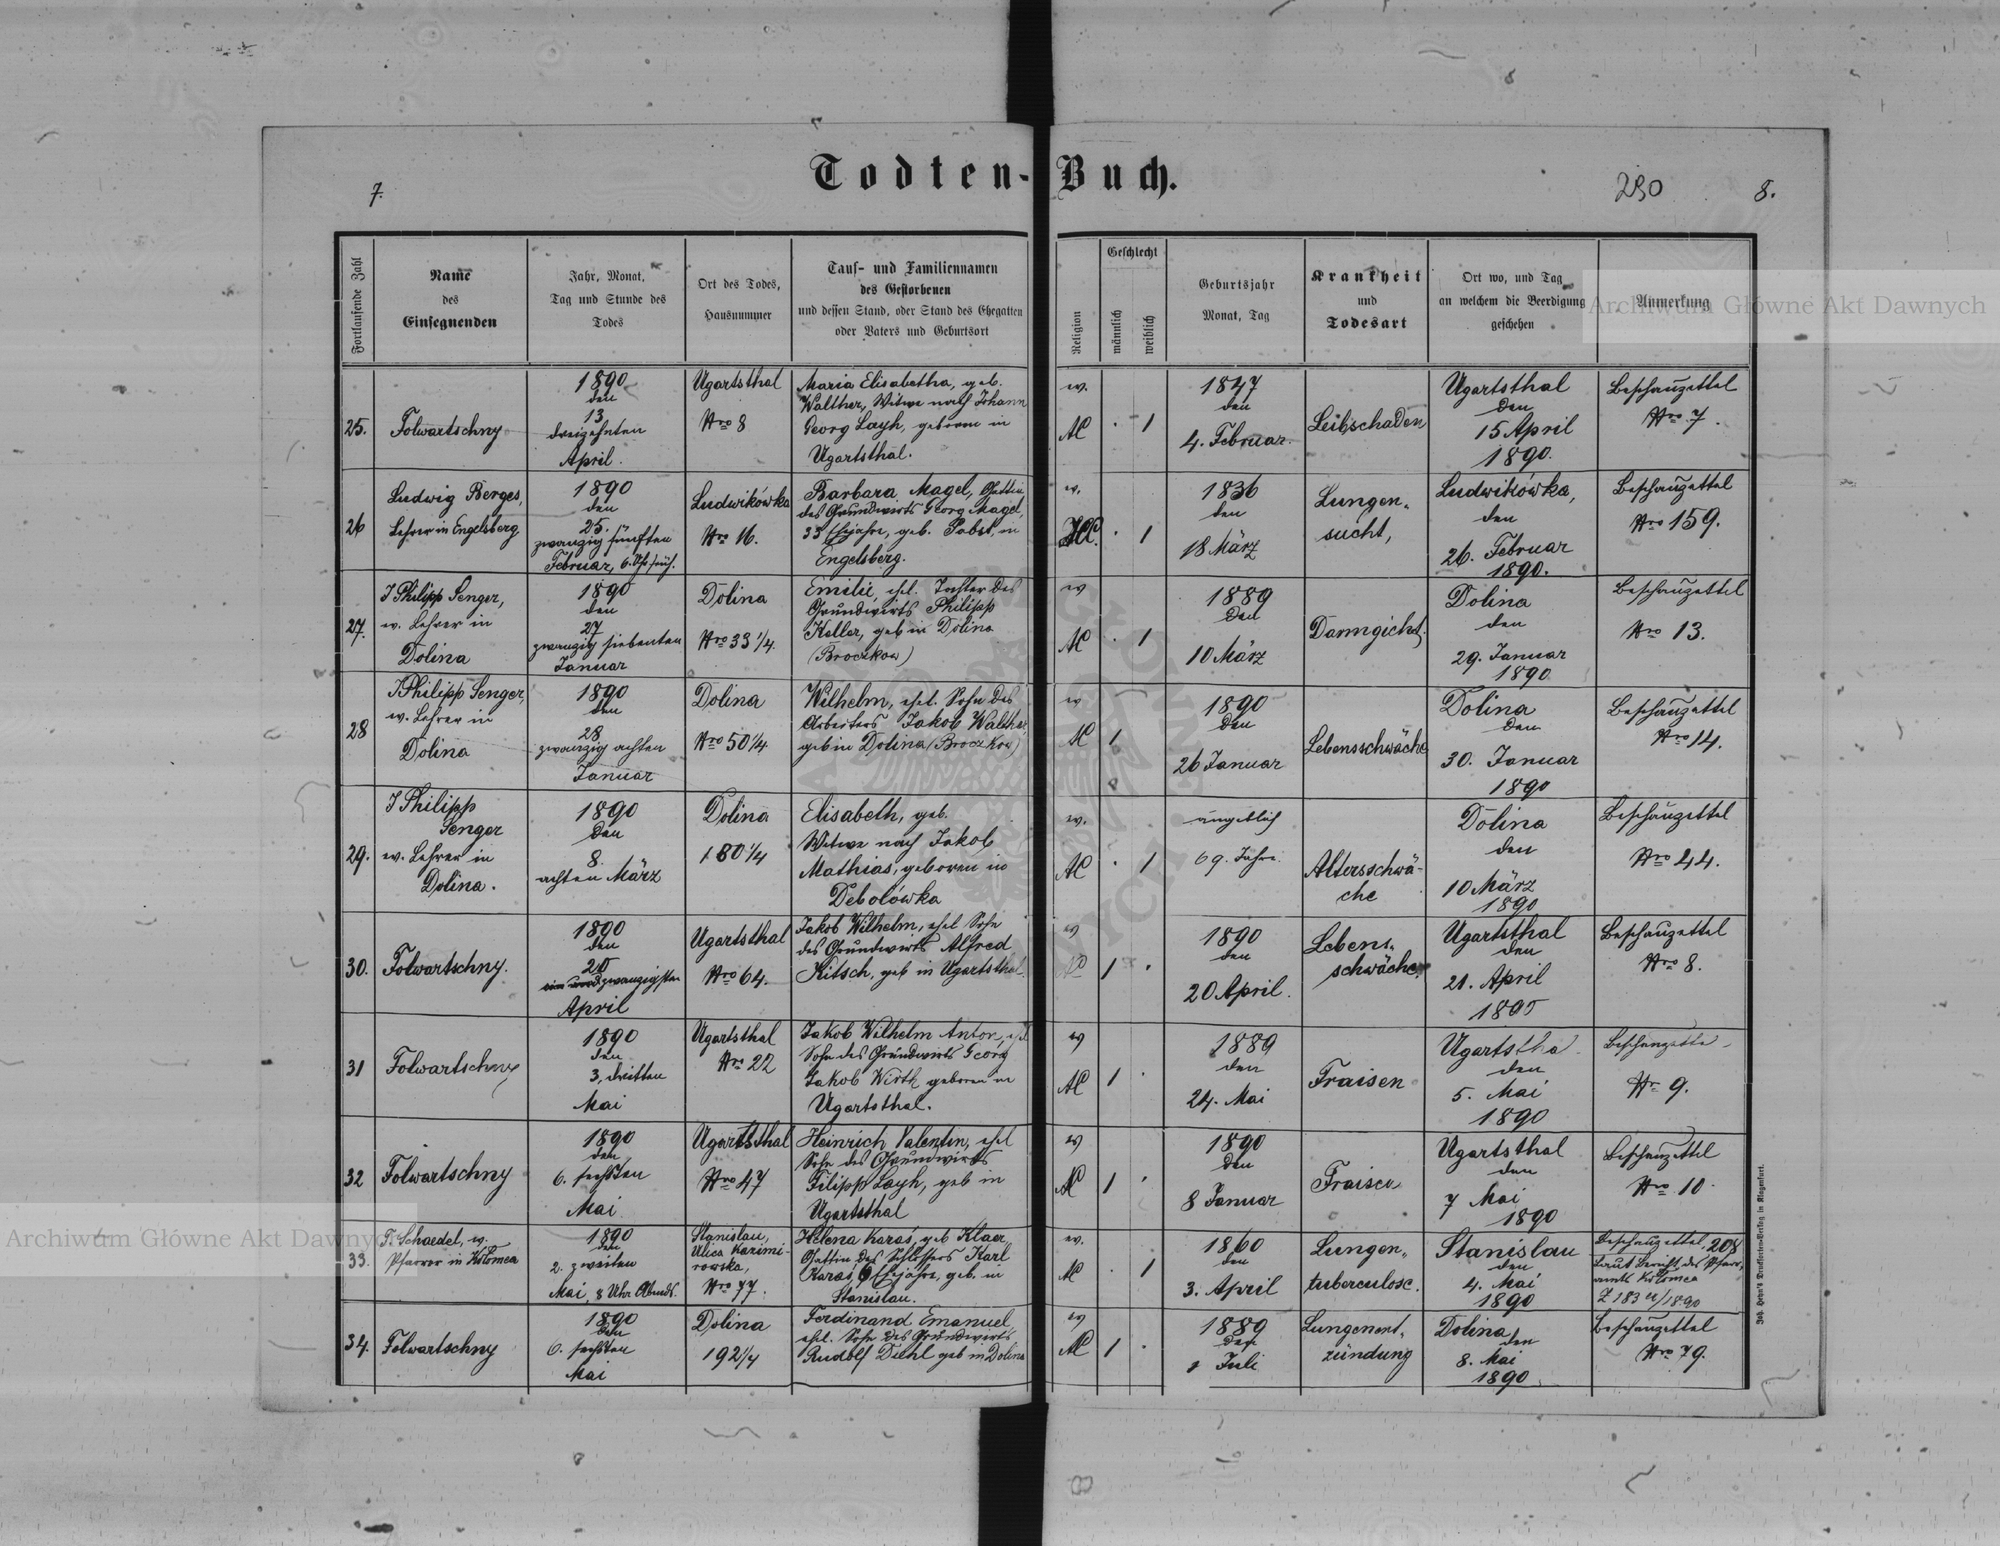 Todten-Buch.
7.
290
8.
Fortlaufende Zahl
Name
des
Einsegnenden
Jahr, Monat,
Tag und Stunde des
Todes
Ort des Todes,
Hausnummer
Tauf- und Familiennamen
des Gestorbenen
und dessen Stand, oder Stand des Ehegatten
oder Vaters und Geburtsort
Religion
Geschlecht
männlich
weiblich
Geburtsjahr
Monat, Tag
Krankheit
und
Todesart
Ort wo, und Tag
an welchem die Beerdigung
geschehen
Anmerkung
Archiwum Główne Akt Dawnych
25.
Folwartschny
1890
den
13.
dreizehnten
April.
Ugartsthal
Nro 8
Maria Elisabetha, geb.
Walther, Witwe nach Johann
Georg Layh, geboren in
Ugartsthal.
ev.
AC
1
1847
den
4. Februar.
Leibschaden
Ugartsthal
den
15 April
1890.
Beschauzettel
Nro 7.
26
Ludwig Berges,
Lehrer in Engelsberg
1890
den
25.
zwanzig fünften
Februar, 6. Uhr früh.
Ludwikówka
Nro 16.
Barbara Magel, Gattin
des Grundwirts Georg Magel,
33 Ehejahre, geb. Pabst, in
Engelsberg.
ev.
1
1836
den
18 März
Lungen-
sucht,
Ludwikówka,
den
26. Februar
1890.
Beschauzettel
Nro 159.
27.
J Philipp Senger,
ev. Lehrer in
Dolina
1890
den
27
zwanzig siebenten
Januar
Dolina
Nro 33 1/4.
Emilie, ehel. Tochter des
Grundwirts Philipp
Keller, geb in Dolina
(Broczkow)
ev
AC
1
1889
den
10 März
Darmgicht.
Dolina
den
29. Januar
1890
Beschauzettel
Nro 13.
28
J Philipp Senger,
ev. Lehrer in
Dolina
1890
den
28
zwanzig achten
Januar
Dolina
Nro 50 1/4
Wilhelm, ehel. Sohn des
Arbeiters Jakob Walther,
geb in Dolina (Broczkow)
ev
AC
1
1890
den
26 Januar
Lebensschwäche
Dolina
den
30. Januar
1890
Beschauzettel
Nro 14.
29.
J Philipp
Senger
ev. Lehrer in
Dolina.
1890
den
8.
achten März
Dolina
180 1/4
Elisabeth, geb.
Witwe nach Jakob
Mathias, geboren in
Debolówka
ev.
AC
1
angeblich
69. Jahre.
Altersschwä-
che
Dolina
den
10 März
1890
Beschauzettel
Nro 44.
30.
Folwartschny.
1890
den
20
zwanzigsten
April
Ugartsthal
Nro 64.
Jakob Wilhelm, ehel Sohn
des Grundwirts Alfred
Kitsch, geb in Ugartsthal.
ev
1
1890
den
20 April.
Lebens-
schwäche.
Ugartsthal
den
21. April
1890
Beschauzettel
Nro 8.
31
Folwartschny
1890
den
3. dritten
Mai
Ugartsthal
Nro 22
Jakob Wilhelm Anton, ehel
Sohn des Grundwirts Georg
Jakob Wirth geboren in
Ugartsthal.
ev
AC
1
1889
den
24. Mai
Fraisen
Ugartstha
den
5. Mai
1890
Beschauzettel
Nro 9.
32
Folwartschny
1890
den
6. sechsten
Mai
Ugartsthal
Nro 47
Heinrich Valentin, ehel
Sohn des Grundwirts
Filipp Layh, geb in
Ugartsthal
ev
AC
1
1890
den
8 Januar
Fraisen
Ugartsthal
den
7 Mai
1890
Beschauzettel
Nro 10.
Archiwum Główne Akt Dawnych
33.
J. Schaedel, ev.
Pfarrer in Kolomea
1890
den
2. zweiten
Mai, 8 Uhr Abends.
Stanislau,
Ulica Kazimi-
rowska,
Nro 77.
Helena Karaś, geb Klaer
Gattin des Schlossers Karl
Karaś, 6 Ehejahre, geb. in
Stanislau.
ev.
AC
1
1860
den
3. April
Lungen-
tuberculose.
Stanislau
den
4. Mai
1890
Beschauzettel, 208
Laut Bericht des Pfarr-
amts Kolomea
Z 183 /1890
34.
Folwartschny
1890
den
6. sechsten
Mai
Dolina
192 1/4
Ferdinand Emanuel,
ehel. Sohn des Grundwirts
Rudolf Diehl geb in Dolina
ev
AC
1
1889
den
1 Juli
Lungenent-
zündung
Dolina
den
8. Mai
1890
Beschauzettel
Nro 79.